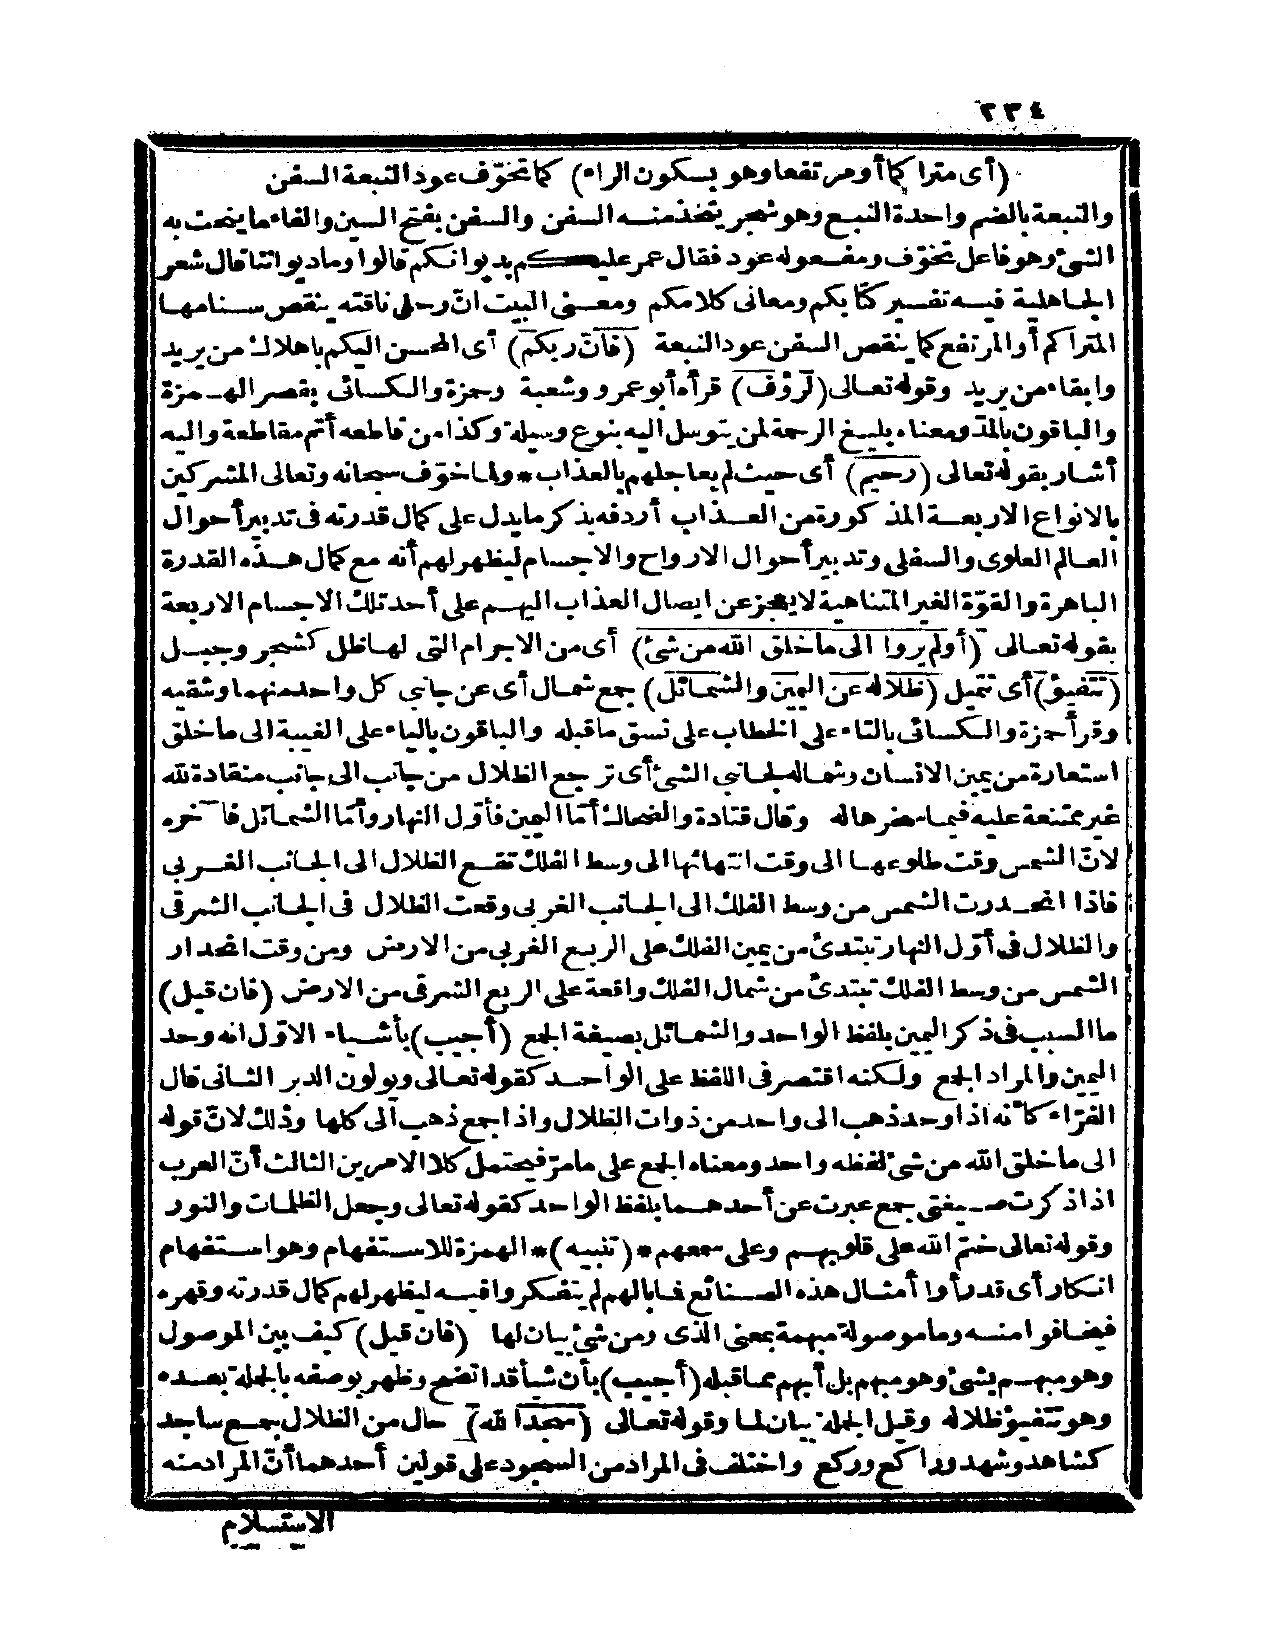 ٢٣٤
(أى متراكما أو مرتفعا وهو بسكون الراء) كما تخوّف عود النبعة السفن
والنبعة بالضم واحدة النبع وهو شجر يتخذ منه السفن والسفن بفتح السين والفاء ما ينحت به
الشئ وهو فاعل تخوّف ومفعوله عود فقال عمر عليكم بديوانكم قالوا وما ديواننا قال شعر
الجاهلية فيه تفسير كتابكم ومعانى كلامكم ومعنى البيت انّ رحلى ناقته ينقص سنامها
المتراكم أو المرتفع كما ينقص السفن عود النبعة (فانّ ربكم) أى المحسن اليكم باهلاك من يريد
وابقاء من يريد وقوله تعالى (لرؤف) قرأه أبو عمرو وشعبة وحمزة والكسائى بقصر الهمزة
والباقون بالمدّ ومعناه بليغ الرحمة لمن يتوسل اليه بنوع وسيلة وكذا من قاطعه أتم مقاطعة واليه
أشار بقوله تعالى (رحيم) أى حيث لم يعاجلهم بالعذاب * ولما خوّف سبحانه وتعالى المشركين
بالانواع الاربعة المذكورة من العذاب أردفه بذكر ما يدل على كمال قدرته فى تدبير أحوال
العالم العلوى والسفلى وتدبير أحوال الارواح والاجسام ليظهر لهم أنه مع كمال هذه القدرة
الباهرة والقوّة الغير المتناهية لا يعجز عن ايصال العذاب اليهم على أحد تلك الاجسام الاربعة
بقوله تعالى (أولم يروا الى ما خلق الله من شئ) أى من الاجرام التى لها ظل كشجر وجبل
(تتفيؤ) أى تتميل (ظلاله عن اليمين والشمائل) جمع شمال أى عن جانبى كل واحد منهما وشقيه
وقرأ حمزة والكسائى بالتاء على الخطاب على نسق ما قبله والباقون بالياء على الغيبة الى ما خلق
استعارة من يمين الانسان وشماله لجانبى الشئ أى ترجع الظلال من جانب الى جانب منقادة لله
غير ممتنعة عليه فيما سخرها له وقال قتادة والضحاك أمّا اليمين فأوّل النهار وأمّا الشمائل فآخره
لانّ الشمس وقت طلوعها الى وقت انتهائها الى وسط الفلك تقع الظلال الى الجانب الغربى
فاذا انحدرت الشمس من وسط الفلك الى الجانب الغربى وقعت الظلال فى الجانب الشرقى
والظلال فى أوّل النهار تبتدئ من يمين الفلك على الربع الغربى من الارض ومن وقت انحدار
الشمس من وسط الفلك تبتدئ من شمال الفلك واقعة على الربع الشرقى من الارض (فان قيل)
ما السبب فى ذكر اليمين بلفظ الواحد والشمائل بصيغة الجمع (أجيب) بأشياء الاوّل انه وحد
اليمين والمراد الجمع ولكنه اقتصر فى اللفظ على الواحد كقوله تعالى ويولون الدبر الثانى قال
الفرّاء كأنه اذا وحد ذهب الى واحد من ذوات الظلال واذا جمع ذهب الى كلها وذلك لانّ قوله
الى ما خلق الله من شئ لفظه واحد ومعناه الجمع على ما مرّ فيحتمل كلا الامرين الثالث أنّ العرب
اذا ذكرت صيغتى جمع عبرت عن أحدهما بلفظ الواحد كقوله تعالى وجعل الظلمات والنور
وقوله تعالى ختم الله على قلوبهم وعلى سمعهم * (تنبيه) * الهمزة للاستفهام وهو استفهام
انكار أى قد رأوا أمثال هذه الصنائع فما بالهم لم يتفكروا فيه ليظهر لهم كمال قدرته وقهره
فيخافوا منه وما موصولة مبهمة بمعنى الذى ومن شئ بيان لها (فان قيل) كيف بين الموصول
وهو مبهم بشئ وهو مبهم بل أبهم مما قبله (أجيب) بأن شيأ قد اتضح وظهر بوصفه بالجملة بعده
وهو تتفيؤ ظلاله وقيل الجملة بيان لما وقوله تعالى (سجدا لله) حال من الظلال جمع ساجد
كشاهد وشهد وراكع وركع واختلف فى المراد من السجود على قولين أحدهما أنّ المراد منه
الاستسلام